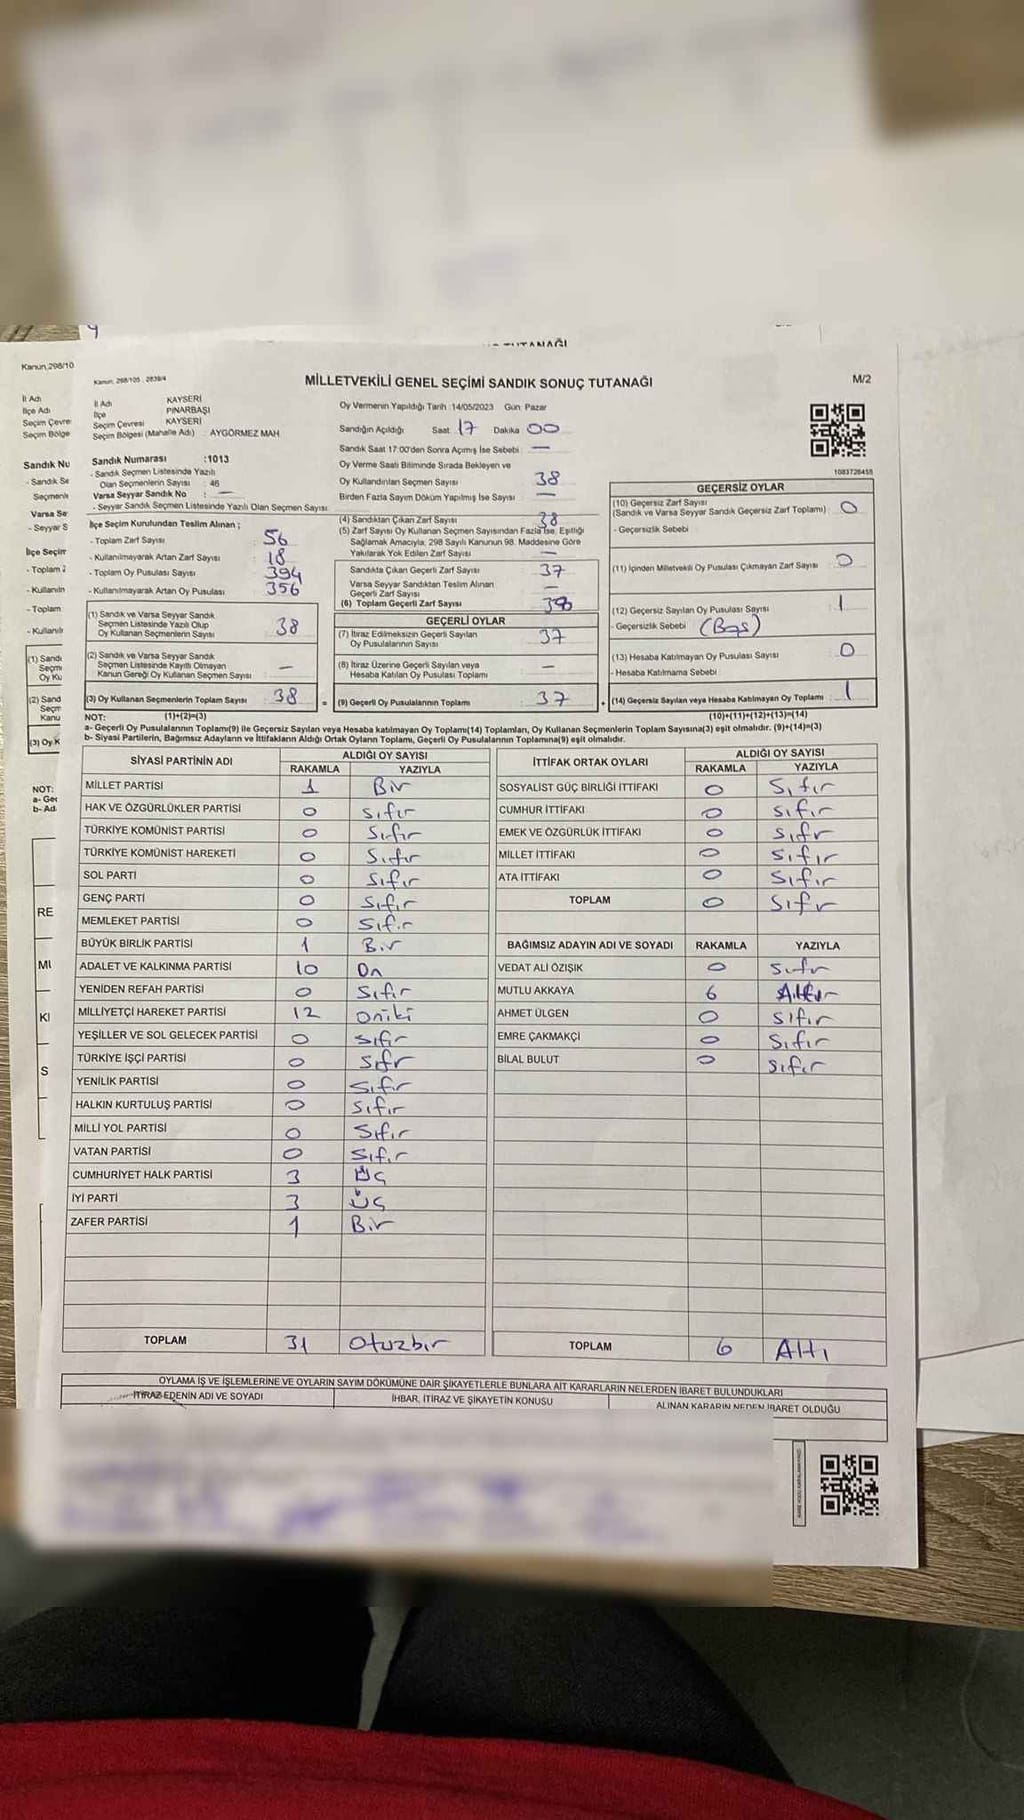 TUTANAĞI
Kanun;298/10
İl Adı
İlçe Adı
Seçim Çevre
Seçim Bölge
Sandık Nu
- Sandık Se
Seçmenle
Varsa Se
- Seyyar S
İlçe Seçim
- Toplam
- Kullanılm
- Toplam
- Kullanılr
(1) Sandı
Seçm
Oy Ku
(2) Sand
Seçm
Kanu
(3) Oy K
NOT:
a- Geç
b- Ad
RE
Mİ
Kİ
S
Kanun; 298/105 , 2839/4
MİLLETVEKİLİ GENEL SEÇİMİ SANDIK SONUÇ TUTANAĞI
M/2
İl Adı KAYSERİ
İlçe PINARBAŞI
Seçim Çevresi KAYSERİ
Seçim Bölgesi (Mahalle Adı) : AYGÖRMEZ MAH
Sandık Numarası :1013
- Sandık Seçmen Listesinde Yazılı
Olan Seçmenlerin Sayısı : 46
Varsa Seyyar Sandık No : —
- Seyyar Sandık Seçmen Listesinde Yazılı Olan Seçmen Sayısı
İlçe Seçim Kurulundan Teslim Alınan ;
- Toplam Zarf Sayısı 56
- Kullanılmayarak Artan Zarf Sayısı 18
- Toplam Oy Pusulası Sayısı 394
- Kullanılmayarak Artan Oy Pusulası 356
(1) Sandık ve Varsa Seyyar Sandık
Seçmen Listesinde Yazılı Olup
Oy Kullanan Seçmenlerin Sayısı 38
(2) Sandık ve Varsa Seyyar Sandık
Seçmen Listesinde Kayıtlı Olmayan
Kanun Gereği Oy Kullanan Seçmen Sayısı —
(3) Oy Kullanan Seçmenlerin Toplam Sayısı 38
Oy Vermenin Yapıldığı Tarih :14/05/2023 Gün: Pazar
Sandığın Açıldığı Saat 17 Dakika 00
Sandık Saat 17:00'den Sonra Açımış İse Sebebi : —
Oy Verme Saati Bitiminde Sırada Bekleyen ve
Oy Kullandırılan Seçmen Sayısı 38
Birden Fazla Sayım Döküm Yapılmış İse Sayısı —
(4) Sandıktan Çıkan Zarf Sayısı 38
(5) Zarf Sayısı Oy Kullanan Seçmen Sayısından Fazla İse, Eşitliği
Sağlamak Amacıyla, 298 Sayılı Kanunun 98. Maddesine Göre
Yakılarak Yok Edilen Zarf Sayısı —
Sandıkta Çıkan Geçerli Zarf Sayısı 37
Varsa Seyyar Sandıktan Teslim Alınan
Geçerli Zarf Sayısı —
(6) Toplam Geçerli Zarf Sayısı
GEÇERLİ OYLAR
(7) İtiraz Edilmeksizin Geçerli Sayılan
Oy Pusulalarının Sayısı 37
(8) İtiraz Üzerine Geçerli Sayılan veya
Hesaba Katılan Oy Pusulası Toplamı —
= (9) Geçerli Oy Pusulalarının Toplamı 37 +
1083726458
GEÇERSİZ OYLAR
(10) Geçersiz Zarf Sayısı
(Sandık ve Varsa Seyyar Sandık Geçersiz Zarf Toplamı) 0
- Geçersizlik Sebebi :
(11) İçinden Milletvekili Oy Pusulası Çıkmayan Zarf Sayısı 0
(12) Geçersiz Sayılan Oy Pusulası Sayısı 1
- Geçersizlik Sebebi (Boş)
(13) Hesaba Katılmayan Oy Pusulası Sayısı 0
- Hesaba Katılmama Sebebi :
(14) Geçersiz Sayılan veya Hesaba Katılmayan Oy Toplamı 1
NOT: (1)+(2)=(3) (10)+(11)+(12)+(13)=(14)
a- Geçerli Oy Pusulalarının Toplamı(9) ile Geçersiz Sayılan veya Hesaba katılmayan Oy Toplamı(14) Toplamları, Oy Kullanan Seçmenlerin Toplam Sayısına(3) eşit olmalıdır. (9)+(14)=(3)
b- Siyasi Partilerin, Bağımsız Adayların ve İttifakların Aldığı Ortak Oyların Toplamı, Geçerli Oy Pusulalarının Toplamına(9) eşit olmalıdır.
SİYASİ PARTİNİN ADI ALDIĞI OY SAYISI
RAKAMLA YAZIYLA
MİLLET PARTİSİ 1 Bir
HAK VE ÖZGÜRLÜKLER PARTİSİ 0 sıfır
TÜRKİYE KOMÜNİST PARTİSİ 0 Sıfır
TÜRKİYE KOMÜNİST HAREKETİ 0 Sıfır
SOL PARTİ 0 Sıfır
GENÇ PARTİ 0 Sıfır
MEMLEKET PARTİSİ 0 Sıfır
BÜYÜK BİRLİK PARTİSİ 1 Bir
ADALET VE KALKINMA PARTİSİ 10 On
YENİDEN REFAH PARTİSİ 0 Sıfır
MİLLİYETÇİ HAREKET PARTİSİ 12 oniki
YEŞİLLER VE SOL GELECEK PARTİSİ 0 Sıfır
TÜRKİYE İŞÇİ PARTİSİ 0 Sıfr
YENİLİK PARTİSİ 0 Sıfır
HALKIN KURTULUŞ PARTİSİ 0 Sıfır
MİLLİ YOL PARTİSİ 0 Sıfır
VATAN PARTİSİ 0 Sıfır
CUMHURİYET HALK PARTİSİ 3 Üç
İYİ PARTİ 3 Üç
ZAFER PARTİSİ 1 Bir
TOPLAM 31 Otuzbir
İTTİFAK ORTAK OYLARI ALDIĞI OY SAYISI
RAKAMLA YAZIYLA
SOSYALİST GÜÇ BİRLİĞİ İTTİFAKI 0 Sıfır
CUMHUR İTTİFAKI 0 Sıfır
EMEK VE ÖZGÜRLÜK İTTİFAKI 0 sıfr
MİLLET İTTİFAKI 0 Sıfır
ATA İTTİFAKI 0 Sıfır
TOPLAM 0 Sıfr
BAĞIMSIZ ADAYIN ADI VE SOYADI RAKAMLA YAZIYLA
VEDAT ALİ ÖZIŞIK 0 sıfr
MUTLU AKKAYA 6
AHMET ÜLGEN 0 Sıfır
EMRE ÇAKMAKÇİ 0 Sıfır
BİLAL BULUT 0 Sıfır
TOPLAM 6 Altı
OYLAMA İŞ VE İŞLEMLERİNE VE OYLARIN SAYIM DÖKÜMÜNE DAİR ŞİKAYETLERLE BUNLARA AİT KARARLARIN NELERDEN İBARET BULUNDUKLARI
İTİRAZ EDENİN ADI VE SOYADI İHBAR, İTİRAZ VE ŞİKAYETİN KONUSU ALINAN KARARIN NEDEN İBARET OLDUĞU